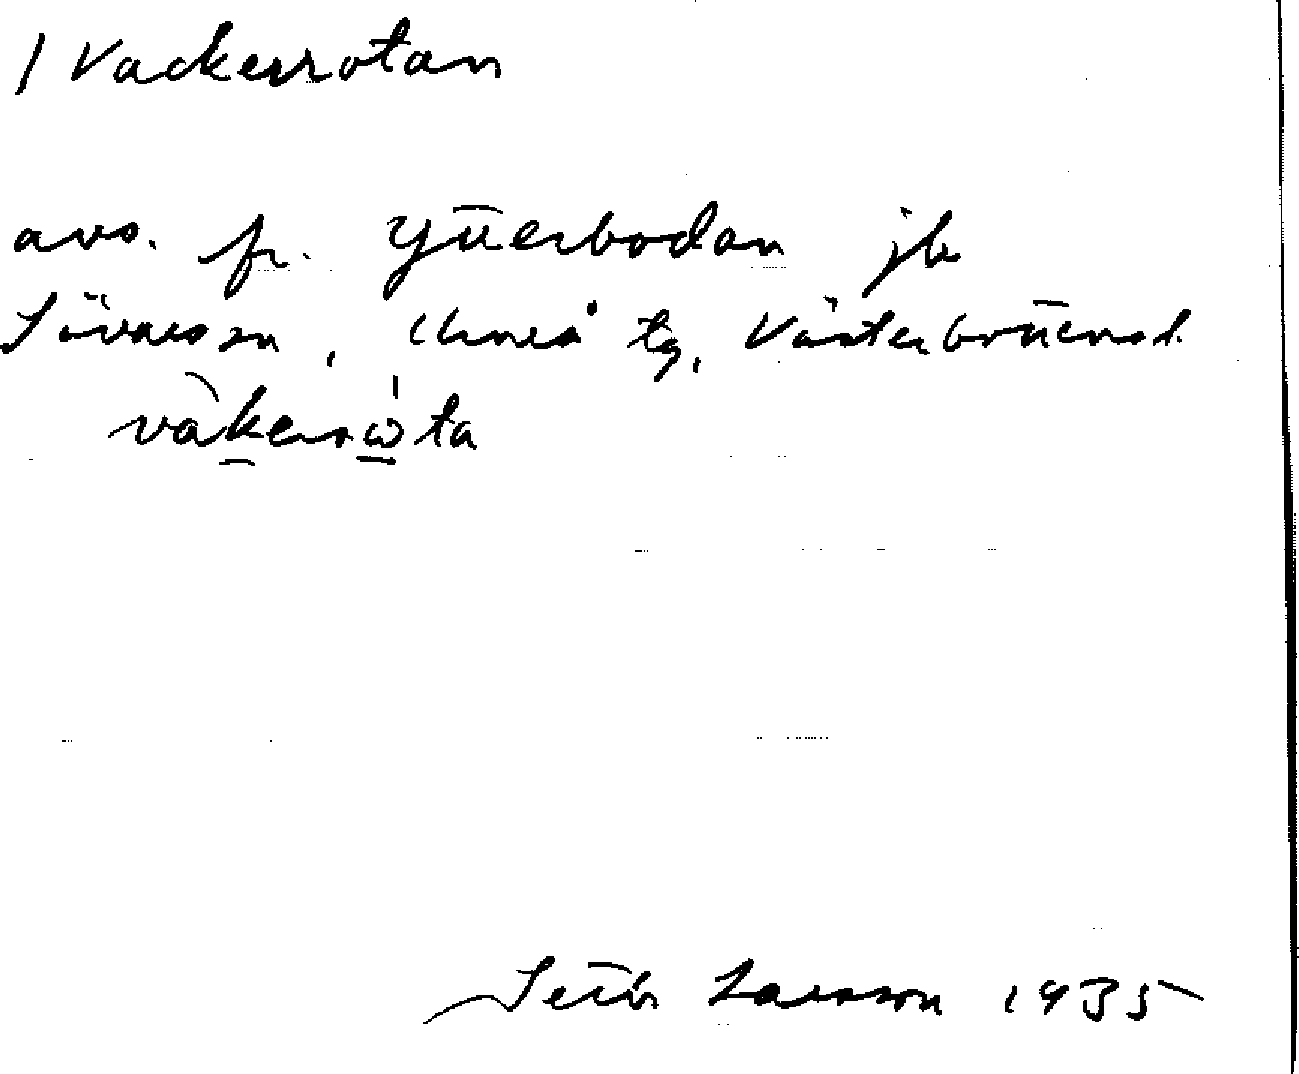 / Vackerrotan
avs. fr. Gullerbodan jb
Sävarsån, Umeå tg, Västerbottens l.
vàkerrò̱ta
Seth Larsson 1935